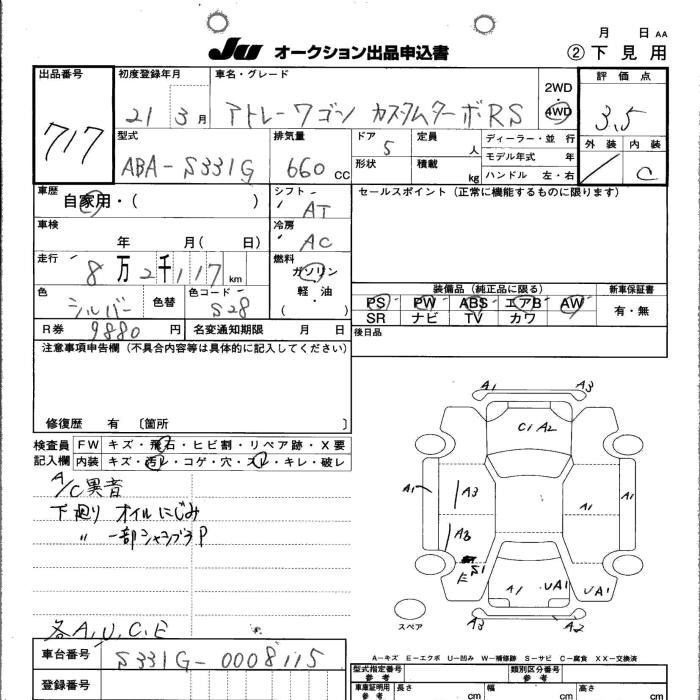 月 日 AA
JU オークション出品申込書 ②下見用
出品番号 初度登録年月 車名・グレード 2WD 評価点
717 21 3月 アトレーワゴン カスタムターボRS 4WD 3.5
型式 排気量 ドア 定員 ディーラー・並行 外装 内装
ABA-S331G 660 CC 5 人 モデル年式 年 C
形状 積載 kg ハンドル 左・右
車歴 シフト セールスポイント(正常に機能するものに限ります)
自家用・( ) AT
車検 冷房
年 月( 日) AC
走行 燃料
8万2千117km ガソリン
色 色替 色コード 軽・油
シルバー S28 ( )
装備品(純正品に限る) 新車保証書
PS PW ABS エアB AW 有・無
SR ナビ TV カワ
R券 9880円 名変通知期限 月 日 後日品
注意事項申告欄(不具合内容等は具体的に記入してください)
修復歴 有 〔箇所 〕
検査員 FW キズ・飛石・ヒビ割・リペア跡・X要
記入欄 内装 キズ・汚レ・コゲ・穴・スレ・キレ・破レ
A/C異音
下廻り オイルにじみ
〃 一部シャシブラP
各A,U,C,E
A1 A3
C1 A2
A1 A3 A1 A1
A3
S1
E A1 UA1 UA1
スペア A3 A2
A-キズ E-エクボ U-凹み W-補修跡 S-サビ C-腐食 XX-交換済
車台番号 S331G-0008115
型式指定番号 参考 類別区分番号 参考
登録番号 車庫証明用 参考 長さ cm 幅 cm 高さ cm